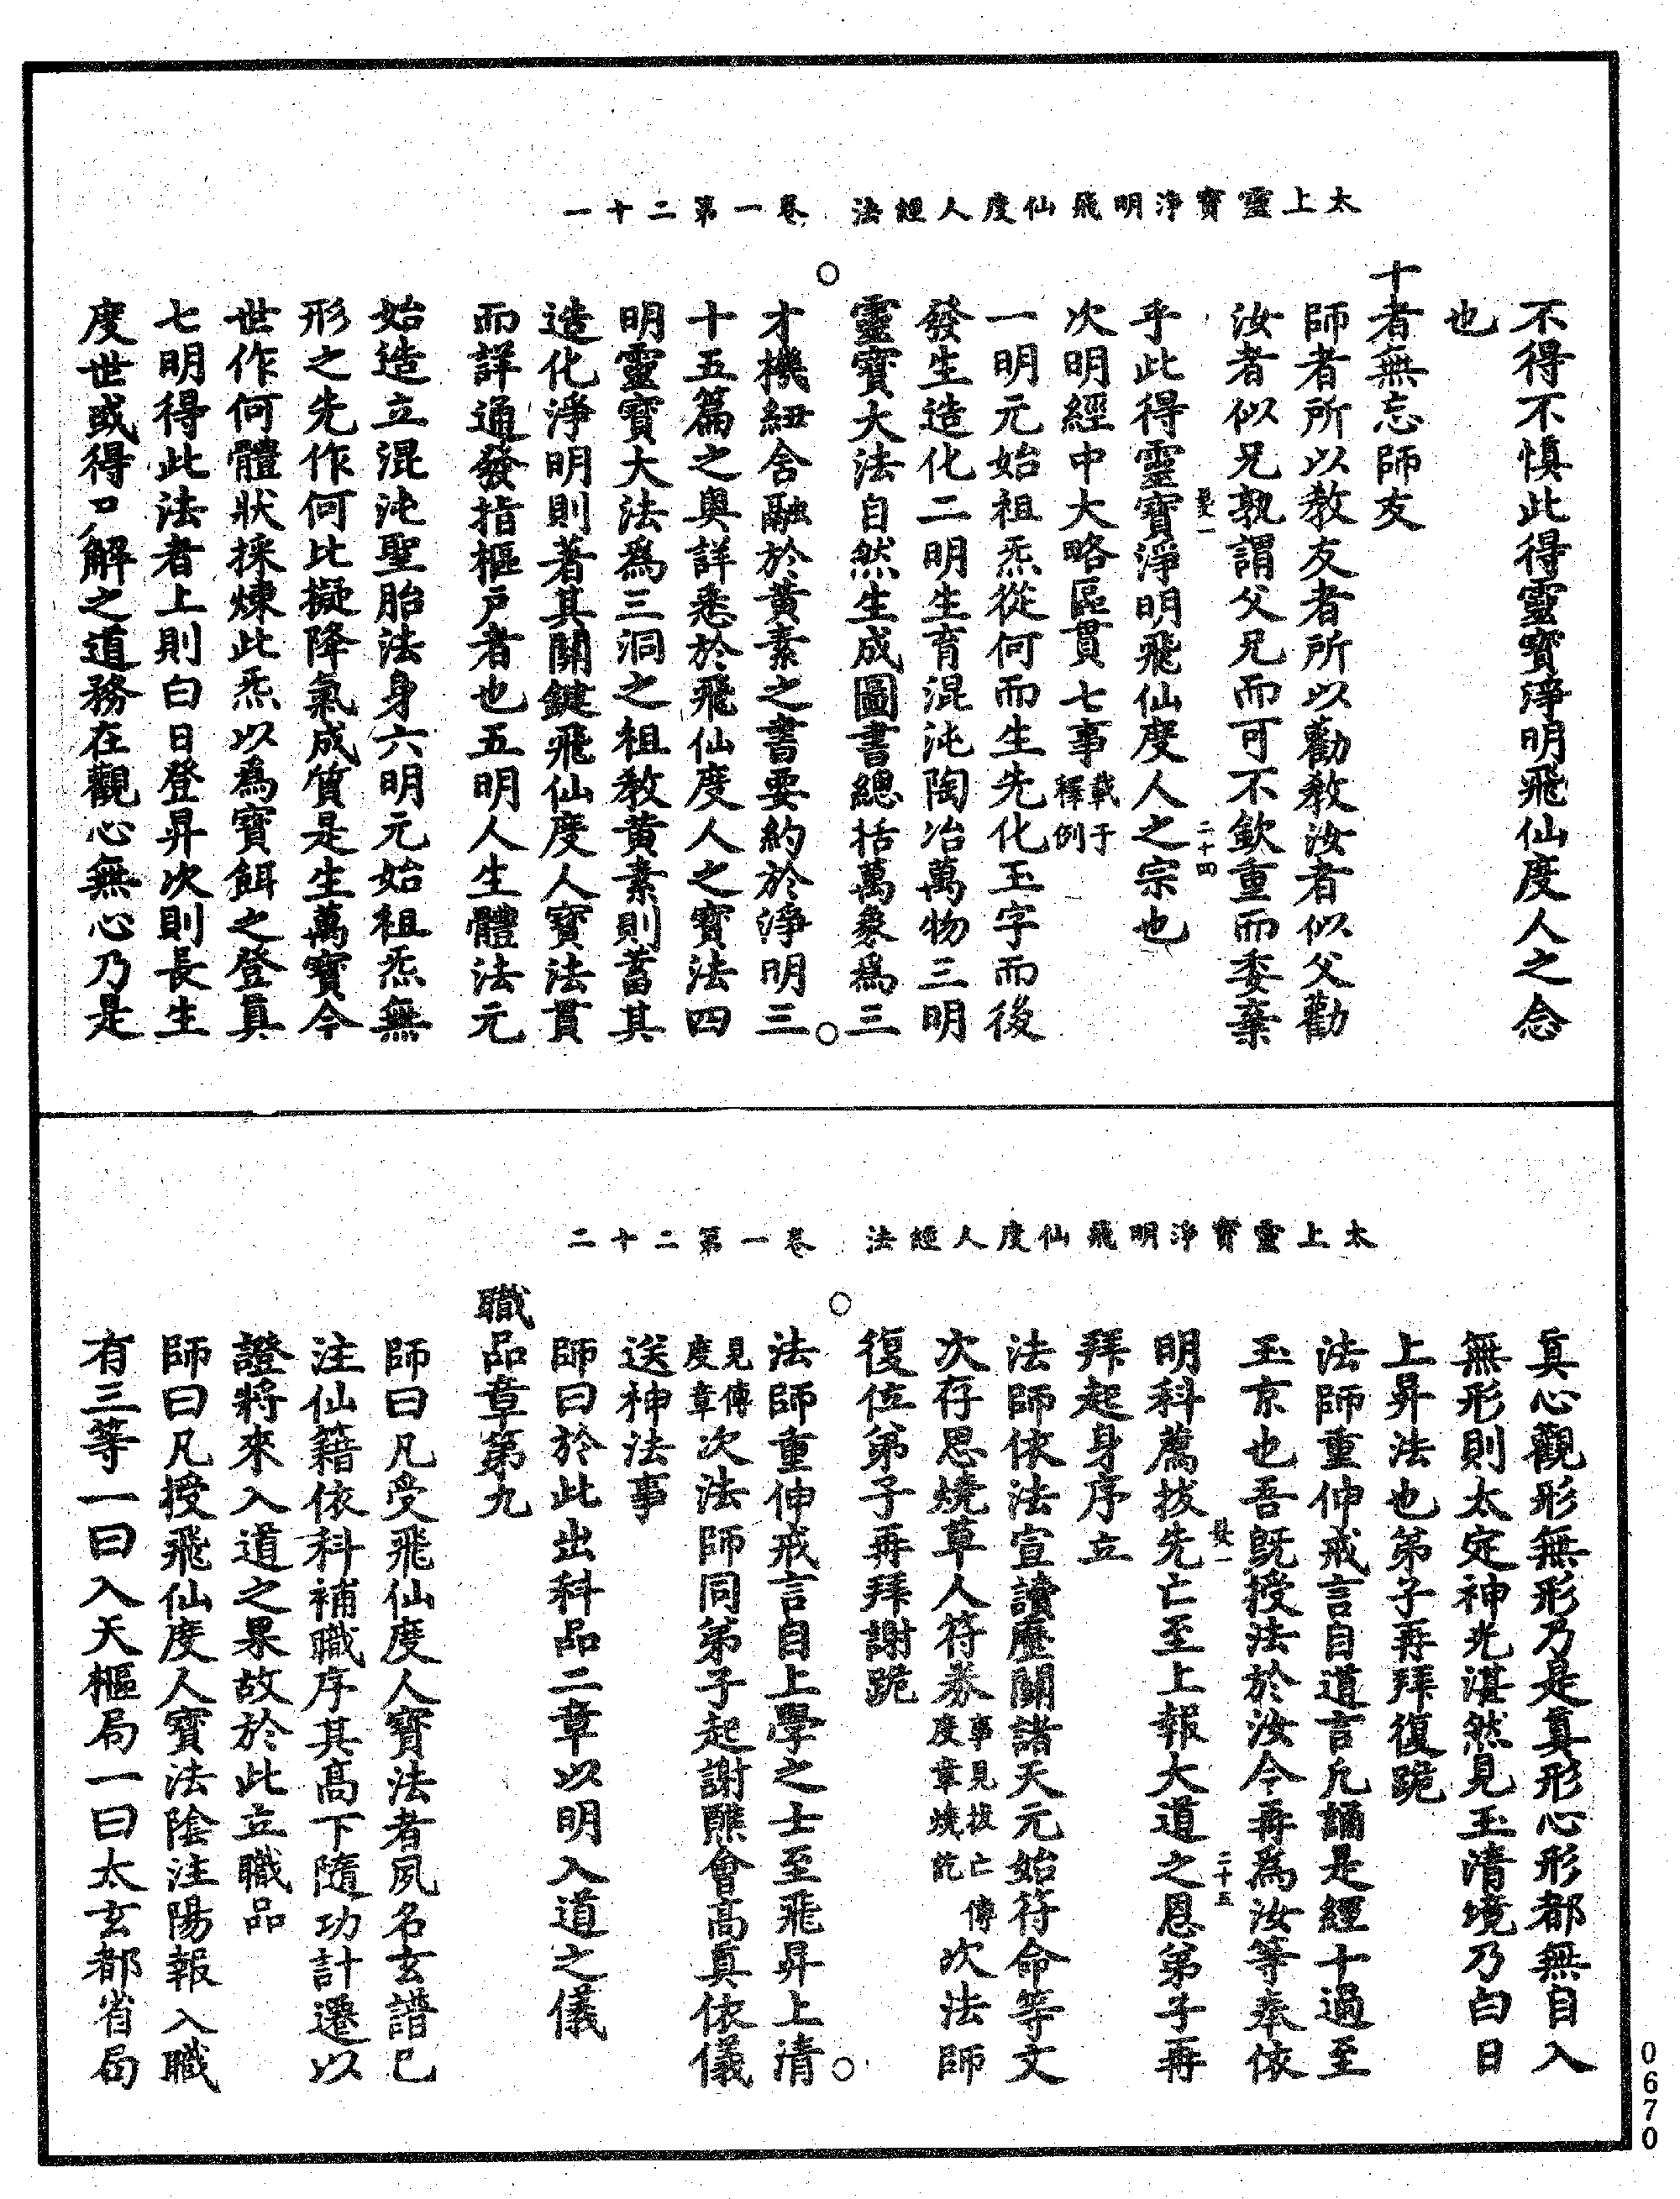 太上靈寶淨明飛仙度人經法 卷一第二十一
不得不慎此得靈寶淨明飛仙度人之念
也
十者無忘師友
師者所以教友者所以勸教汝者似父勸
汝者似兄孰謂父兄而可不欽重而委棄
二十四
乎此得靈寶淨明飛仙度人之宗也
次明經中大略區貫七事載于釋例
一明元始祖炁從何而生先化玉字而後
發生造化二明生育混沌陶冶萬物三明
靈寶大法自然生成圖書總括萬象為三
才機紐含融於黃素之書要約於淨明三
十五篇之奧詳悉於飛仙度人之寶法四
明靈寶大法為三洞之祖教黃素則蓄其
造化淨明則著其關鍵飛仙度人寶法貫
而詳通發指樞戶者也五明人生體法元
始造立混沌聖胎法身六明元始祖炁無
形之先作何比擬降氣成質是生萬寶今
世作何體狀採煉此炁以為寶餌之登真
七明得此法者上則白日登昇次則長生
度世或得尸解之道務在觀心無心乃是
太上靈寶淨明飛仙度人經法 卷一第二十二
真心觀形無形乃是真形心形都無自入
無形則太定神光湛然見玉清境乃白日
上昇法也弟子再拜復跪
法師重伸戒言自道言凡誦是經十過至
玉京也吾既授法於汝今再為汝等奉依
二十五
明科薦拔先亡至上報大道之恩弟子再
拜起身序立
法師依法宣讀歷關諸天元始符命等文
次存思燒草人符券事見拔亡度章燒訖傳次法師
復位弟子再拜謝跪
法師重伸戒言自上學之士至飛昇上清
見傳度章次法師同弟子起謝醮會高真依儀
送神法事
師曰於此出科品二章以明入道之儀
職品章第九
師曰凡受飛仙度人寶法者夙名玄譜已
注仙籍依科補職序其高下隨功計遷以
證將來入道之果故於此立職品
師曰凡授飛仙度人寶法陰注陽報入職
有三等一曰入天樞局一曰太玄都省局
0670